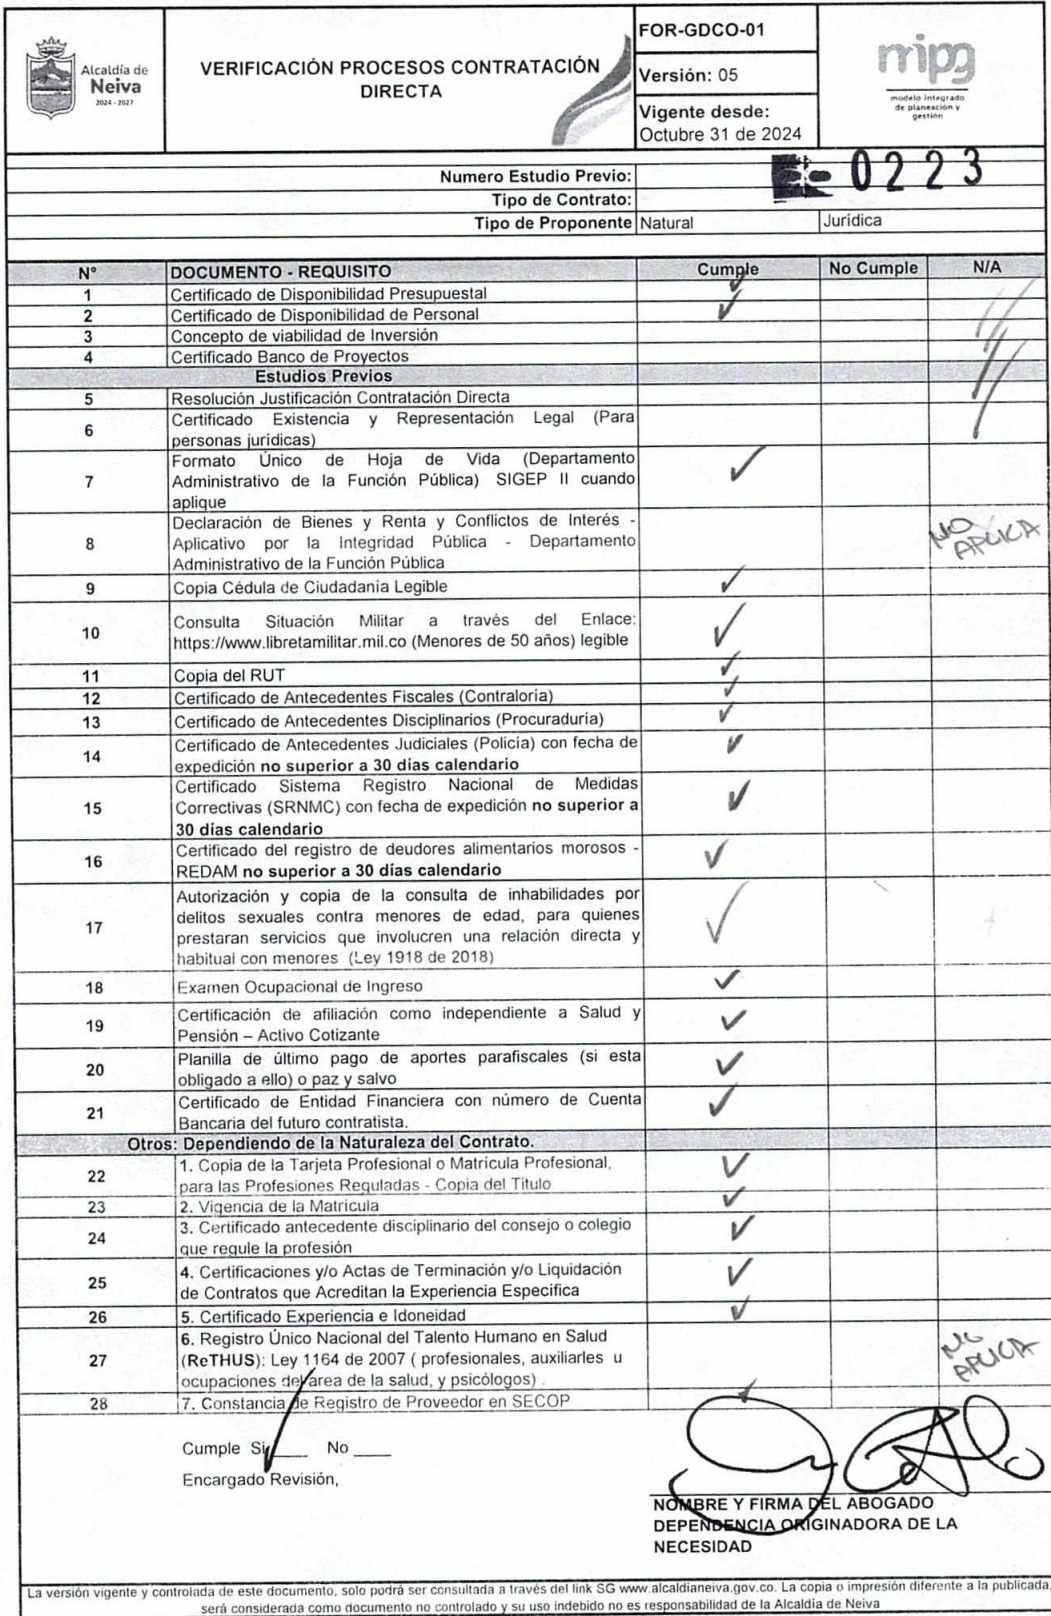 Alcaldía de
Neiva
2024 - 2027
VERIFICACIÓN PROCESOS CONTRATACIÓN
DIRECTA
FOR-GDCO-01
Versión: 05
Vigente desde:
Octubre 31 de 2024
mipg
modelo integrado
de planeación y
gestión
Numero Estudio Previo: 0223
Tipo de Contrato:
Tipo de Proponente Natural Jurídica
N° DOCUMENTO - REQUISITO Cumple No Cumple N/A
1 Certificado de Disponibilidad Presupuestal ✓
2 Certificado de Disponibilidad de Personal ✓
3 Concepto de viabilidad de Inversión
4 Certificado Banco de Proyectos
Estudios Previos
5 Resolución Justificación Contratación Directa
6 Certificado Existencia y Representación Legal (Para
personas jurídicas)
7 Formato Único de Hoja de Vida (Departamento
Administrativo de la Función Pública) SIGEP II cuando
aplique ✓
8 Declaración de Bienes y Renta y Conflictos de Interés -
Aplicativo por la Integridad Pública - Departamento
Administrativo de la Función Pública
NO
APLICA
9 Copia Cédula de Ciudadanía Legible ✓
10 Consulta Situación Militar a través del Enlace:
https://www.libretamilitar.mil.co (Menores de 50 años) legible ✓
11 Copia del RUT ✓
12 Certificado de Antecedentes Fiscales (Contraloría) ✓
13 Certificado de Antecedentes Disciplinarios (Procuraduría) ✓
14 Certificado de Antecedentes Judiciales (Policía) con fecha de
expedición no superior a 30 días calendario ✓
15 Certificado Sistema Registro Nacional de Medidas
Correctivas (SRNMC) con fecha de expedición no superior a
30 días calendario ✓
16 Certificado del registro de deudores alimentarios morosos -
REDAM no superior a 30 días calendario ✓
17 Autorización y copia de la consulta de inhabilidades por
delitos sexuales contra menores de edad, para quienes
prestaran servicios que involucren una relación directa y
habitual con menores (Ley 1918 de 2018) ✓
18 Examen Ocupacional de Ingreso ✓
19 Certificación de afiliación como independiente a Salud y
Pensión – Activo Cotizante ✓
20 Planilla de último pago de aportes parafiscales (si esta
obligado a ello) o paz y salvo ✓
21 Certificado de Entidad Financiera con número de Cuenta
Bancaria del futuro contratista. ✓
Otros: Dependiendo de la Naturaleza del Contrato.
22 1. Copia de la Tarjeta Profesional o Matricula Profesional,
para las Profesiones Reguladas - Copia del Titulo ✓
23 2. Vigencia de la Matricula ✓
24 3. Certificado antecedente disciplinario del consejo o colegio
que regule la profesión ✓
25 4. Certificaciones y/o Actas de Terminación y/o Liquidación
de Contratos que Acreditan la Experiencia Especifica ✓
26 5. Certificado Experiencia e Idoneidad ✓
27 6. Registro Único Nacional del Talento Humano en Salud
(ReTHUS): Ley 1164 de 2007 ( profesionales, auxiliarles u
ocupaciones del area de la salud, y psicólogos) .
NO
APLICA
28 7. Constancia de Registro de Proveedor en SECOP ✓
Cumple Si ____ No ____
Encargado Revisión,
NOMBRE Y FIRMA DEL ABOGADO
DEPENDENCIA ORIGINADORA DE LA
NECESIDAD
La versión vigente y controlada de este documento, solo podrá ser consultada a través del link SG www.alcaldianeiva.gov.co. La copia o impresión diferente a la publicada,
será considerada como documento no controlado y su uso indebido no es responsabilidad de la Alcaldía de Neiva